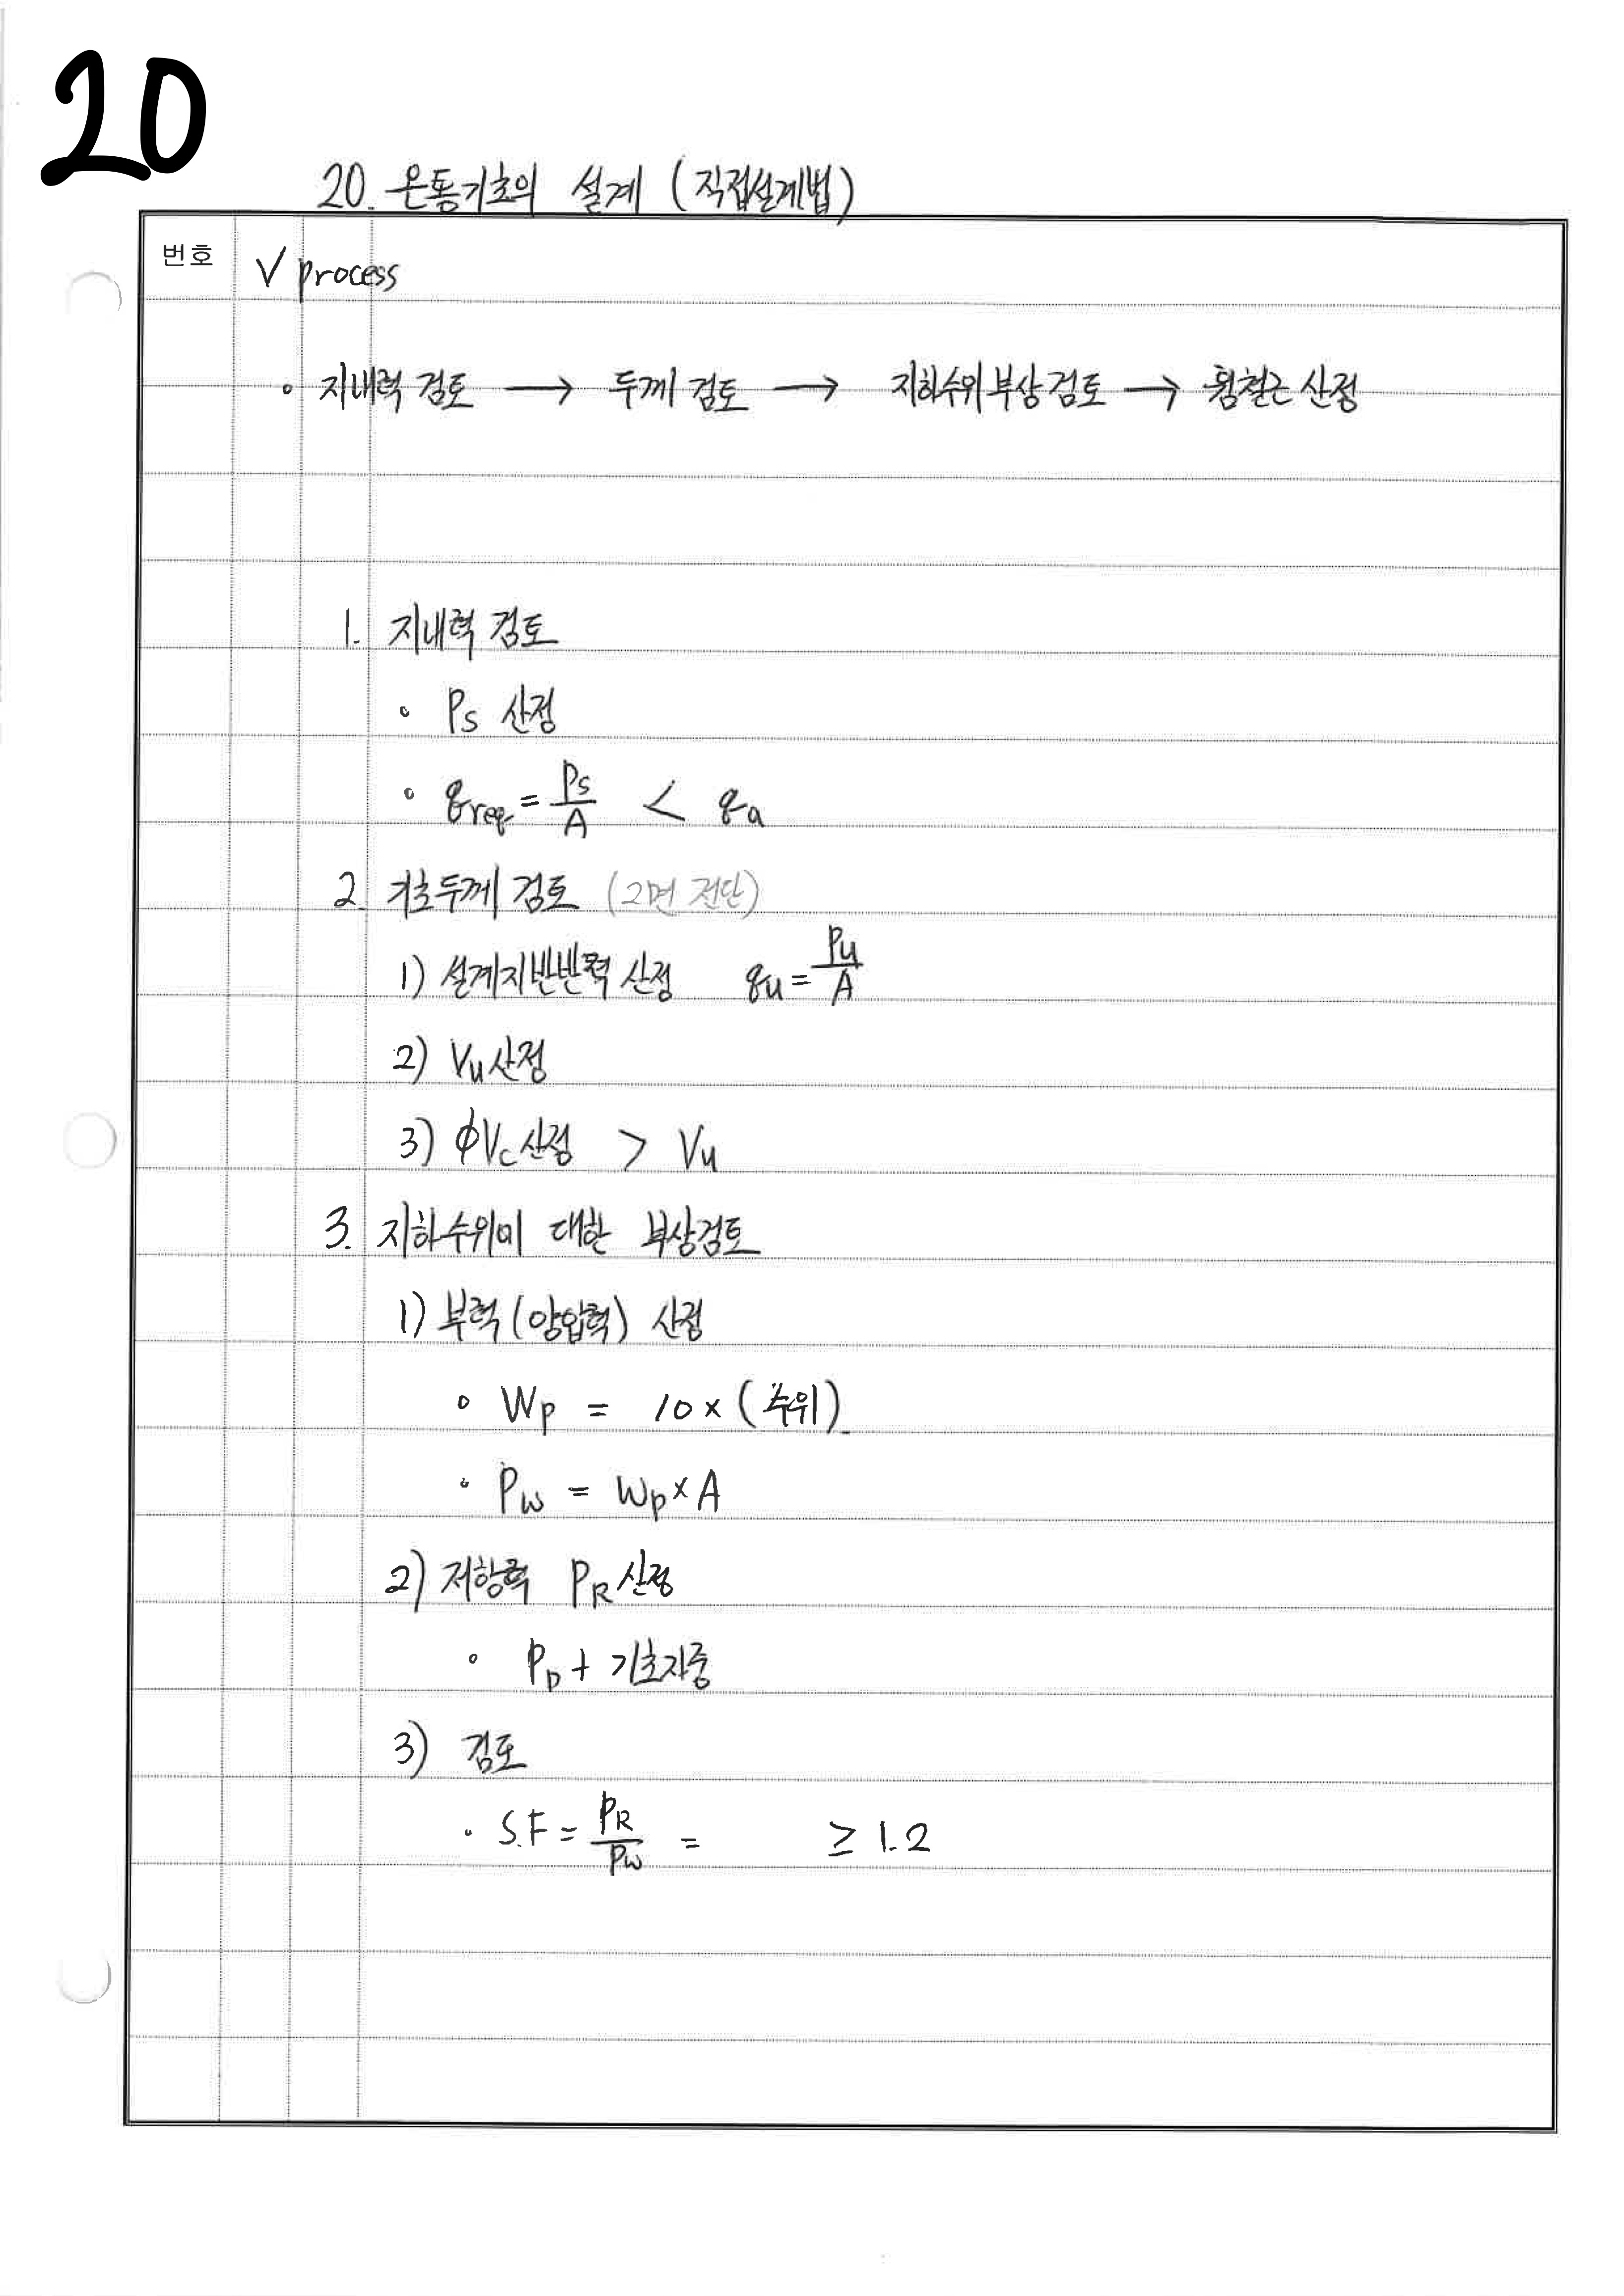 20
20. 온통기초의 설계 (직접설계법)
번호 √ process
∘ 지내력 검토 → 두께 검토 → 지하수위 부상 검토 → 휨철근 산정
1. 지내력 검토
∘ Ps 산정
∘ qreq = Ps/A < qa
2. 기초두께 검토 (2면 전단)
1) 설계지반반력 산정 qu = Pu/A
2) Vu 산정
3) ϕVc 산정 > Vu
3. 지하수위에 대한 부상검토
1) 부력 (양압력) 산정
∘ Wp = 10 × (수위)
∘ Pw = Wp × A
2) 저항력 PR 산정
∘ PD + 기초자중
3) 검토
∘ S.F = PR/Pw = ≥ 1.2